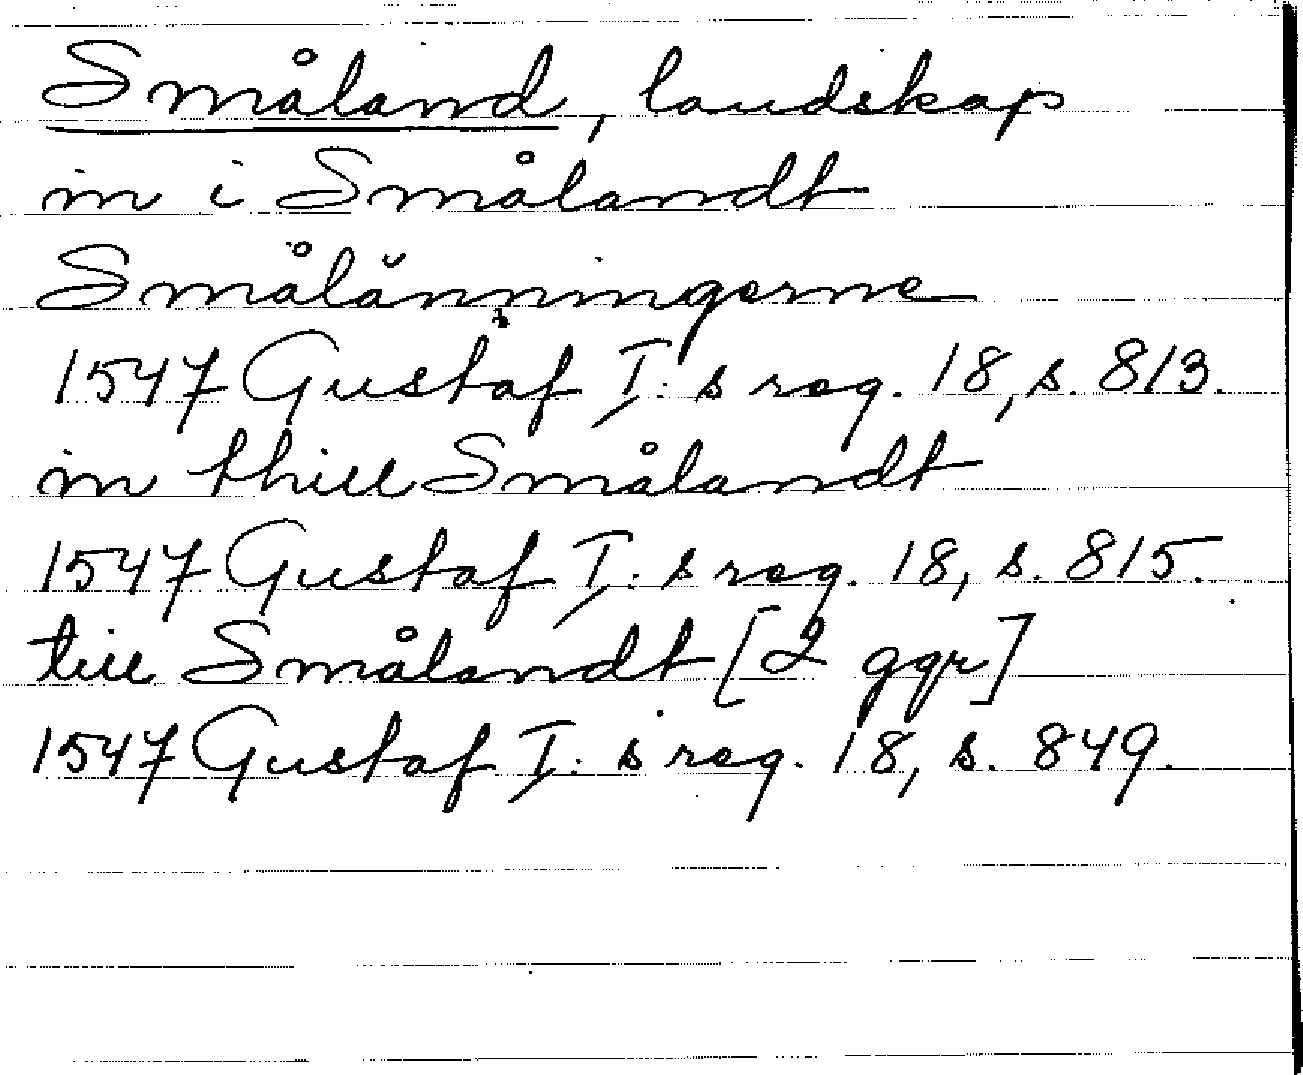 Småland, landskap
in i Smålandt
Smålänningerne
1547 Gustaf I:s reg. 18, s. 813.
in thill Smålandt
1547 Gustaf I:s reg. 18, s. 815.
till Smålandt [2 ggr]
1547 Gustaf I:s reg. 18, s. 849.